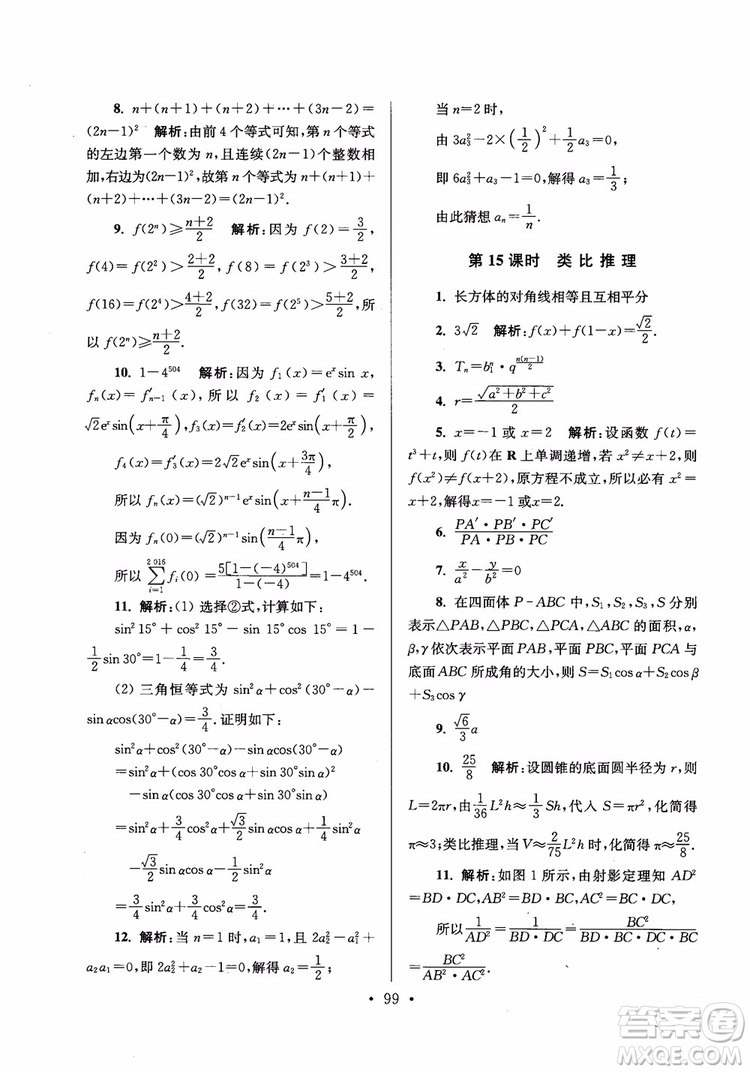 8. n+(n+1)+(n+2)+⋯+(3n-2)=
(2n-1)² 解析:由前 4 个等式可知,第 n 个等式
的左边第一个数为 n,且连续(2n-1)个整数相
加,右边为(2n-1)²,故第 n 个等式为 n+(n+1)+
(n+2)+⋯+(3n-2)=(2n-1)².
9. f(2ⁿ)≥(n+2)/2 解析:因为 f(2)=3/2,
f(4)=f(2²)>(2+2)/2,f(8)=f(2³)>(3+2)/2,
f(16)=f(2⁴)>(4+2)/2,f(32)=f(2⁵)>(5+2)/2,所
以 f(2ⁿ)≥(n+2)/2.
10. 1-4⁵⁰⁴ 解析:因为 f₁(x)=eˣsin x,
fₙ(x)=f′ₙ₋₁(x),所以 f₂(x)=f′₁(x)=
√2eˣsin(x+π/4),f₃(x)=f′₂(x)=2eˣsin(x+2π/4),
f₄(x)=f′₃(x)=2√2eˣsin(x+3π/4),
所以 fₙ(x)=(√2)ⁿ⁻¹eˣsin(x+(n-1)/4 π).
因为 fₙ(0)=(√2)ⁿ⁻¹sin((n-1)/4 π),
所以 ∑_{i=1}^{2 016} fᵢ(0)=5[1-(-4)⁵⁰⁴]/(1-(-4))=1-4⁵⁰⁴.
11. 解析:(1) 选择②式,计算如下:
sin² 15°+cos² 15°-sin 15°cos 15°=1-
1/2 sin 30°=1-1/4=3/4.
(2) 三角恒等式为 sin² α+cos²(30°-α)-
sin αcos(30°-α)=3/4.证明如下:
sin² α+cos²(30°-α)-sin αcos(30°-α)
=sin² α+(cos 30°cos α+sin 30°sin α)²
-sin α(cos 30°cos α+sin 30°sin α)
=sin² α+3/4 cos² α+√3/2 sin αcos α+1/4 sin² α
-√3/2 sin αcos α-1/2 sin² α
=3/4 sin² α+3/4 cos² α=3/4.
12. 解析:当 n=1 时,a₁=1,且 2a₂²-a₁²+
a₂a₁=0,即 2a₂²+a₂-1=0,解得 a₂=1/2;
当 n=2 时,
由 3a₃²-2×(1/2)²+1/2 a₃=0,
即 6a₃²+a₃-1=0,解得 a₃=1/3;
由此猜想 aₙ=1/n.
第 15 课时 类 比 推 理
1. 长方体的对角线相等且互相平分
2. 3√2 解析:f(x)+f(1-x)=√2/2.
3. Tₙ=b₁ⁿ·q^(n(n-1)/2)
4. r=√(a²+b²+c²)/2
5. x=-1 或 x=2 解析:设函数 f(t)=
t³+t,则 f(t)在 R 上单调递增,若 x²≠x+2,则
f(x²)≠f(x+2),原方程不成立,所以必有 x²=
x+2,解得x=-1或x=2.
6. (PA′·PB′·PC′)/(PA·PB·PC)
7. x/a²-y/b²=0
8. 在四面体 P-ABC 中,S₁,S₂,S₃,S 分别
表示△PAB,△PBC,△PCA,△ABC 的面积,α,
β,γ 依次表示平面 PAB,平面 PBC,平面 PCA 与
底面 ABC 所成角的大小,则 S=S₁cos α+S₂cos β
+S₃cos γ
9. √6/3 a
10. 25/8 解析:设圆锥的底面圆半径为 r,则
L=2πr,由 1/36 L²h≈1/3 Sh,代入 S=πr²,化简得 π
≈3;类比推理,当 V≈2/75 L²h 时,化简得 π≈25/8.
11. 解析:如图 1 所示,由射影定理知 AD²
=BD·DC,AB²=BD·BC,AC²=BC·DC,
所以 1/AD²=1/(BD·DC)=BC²/(BD·BC·DC·BC)
=BC²/(AB²·AC²).
· 99 ·
答案圈
MXQE.COM